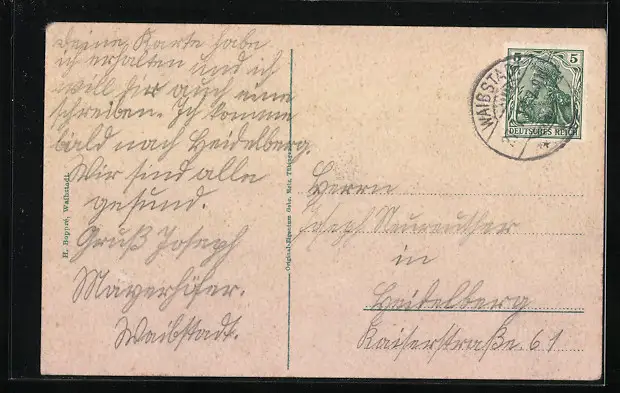 Deine Karte habe
ich erhalten und ich
will dir auch eine
schreiben. Ich komme
bald nach Heidelberg.
Wir sind alle
gesund.
Gruß Joseph
Mayerhöfer.
Waibstadt.
H. Boppré, Waibstadt.
Original-Eigentum Gebr. Metz, Tübingen
WAIBSTA
5
DEUTSCHES REICH
Herrn
Joseph Neureuther
in
Heidelberg
Kaiserstraße. 61